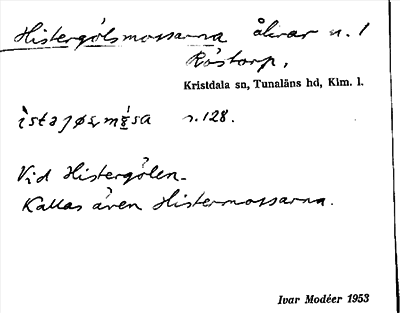 Histergölsmossarna åkrar n. 1
Röstorp,
Kristdala sn, Tunaläns hd, Klm. l.
s. 128.
Vid Histergölen.
Kallas även Histermossarna.
Ivar Modéer 1953